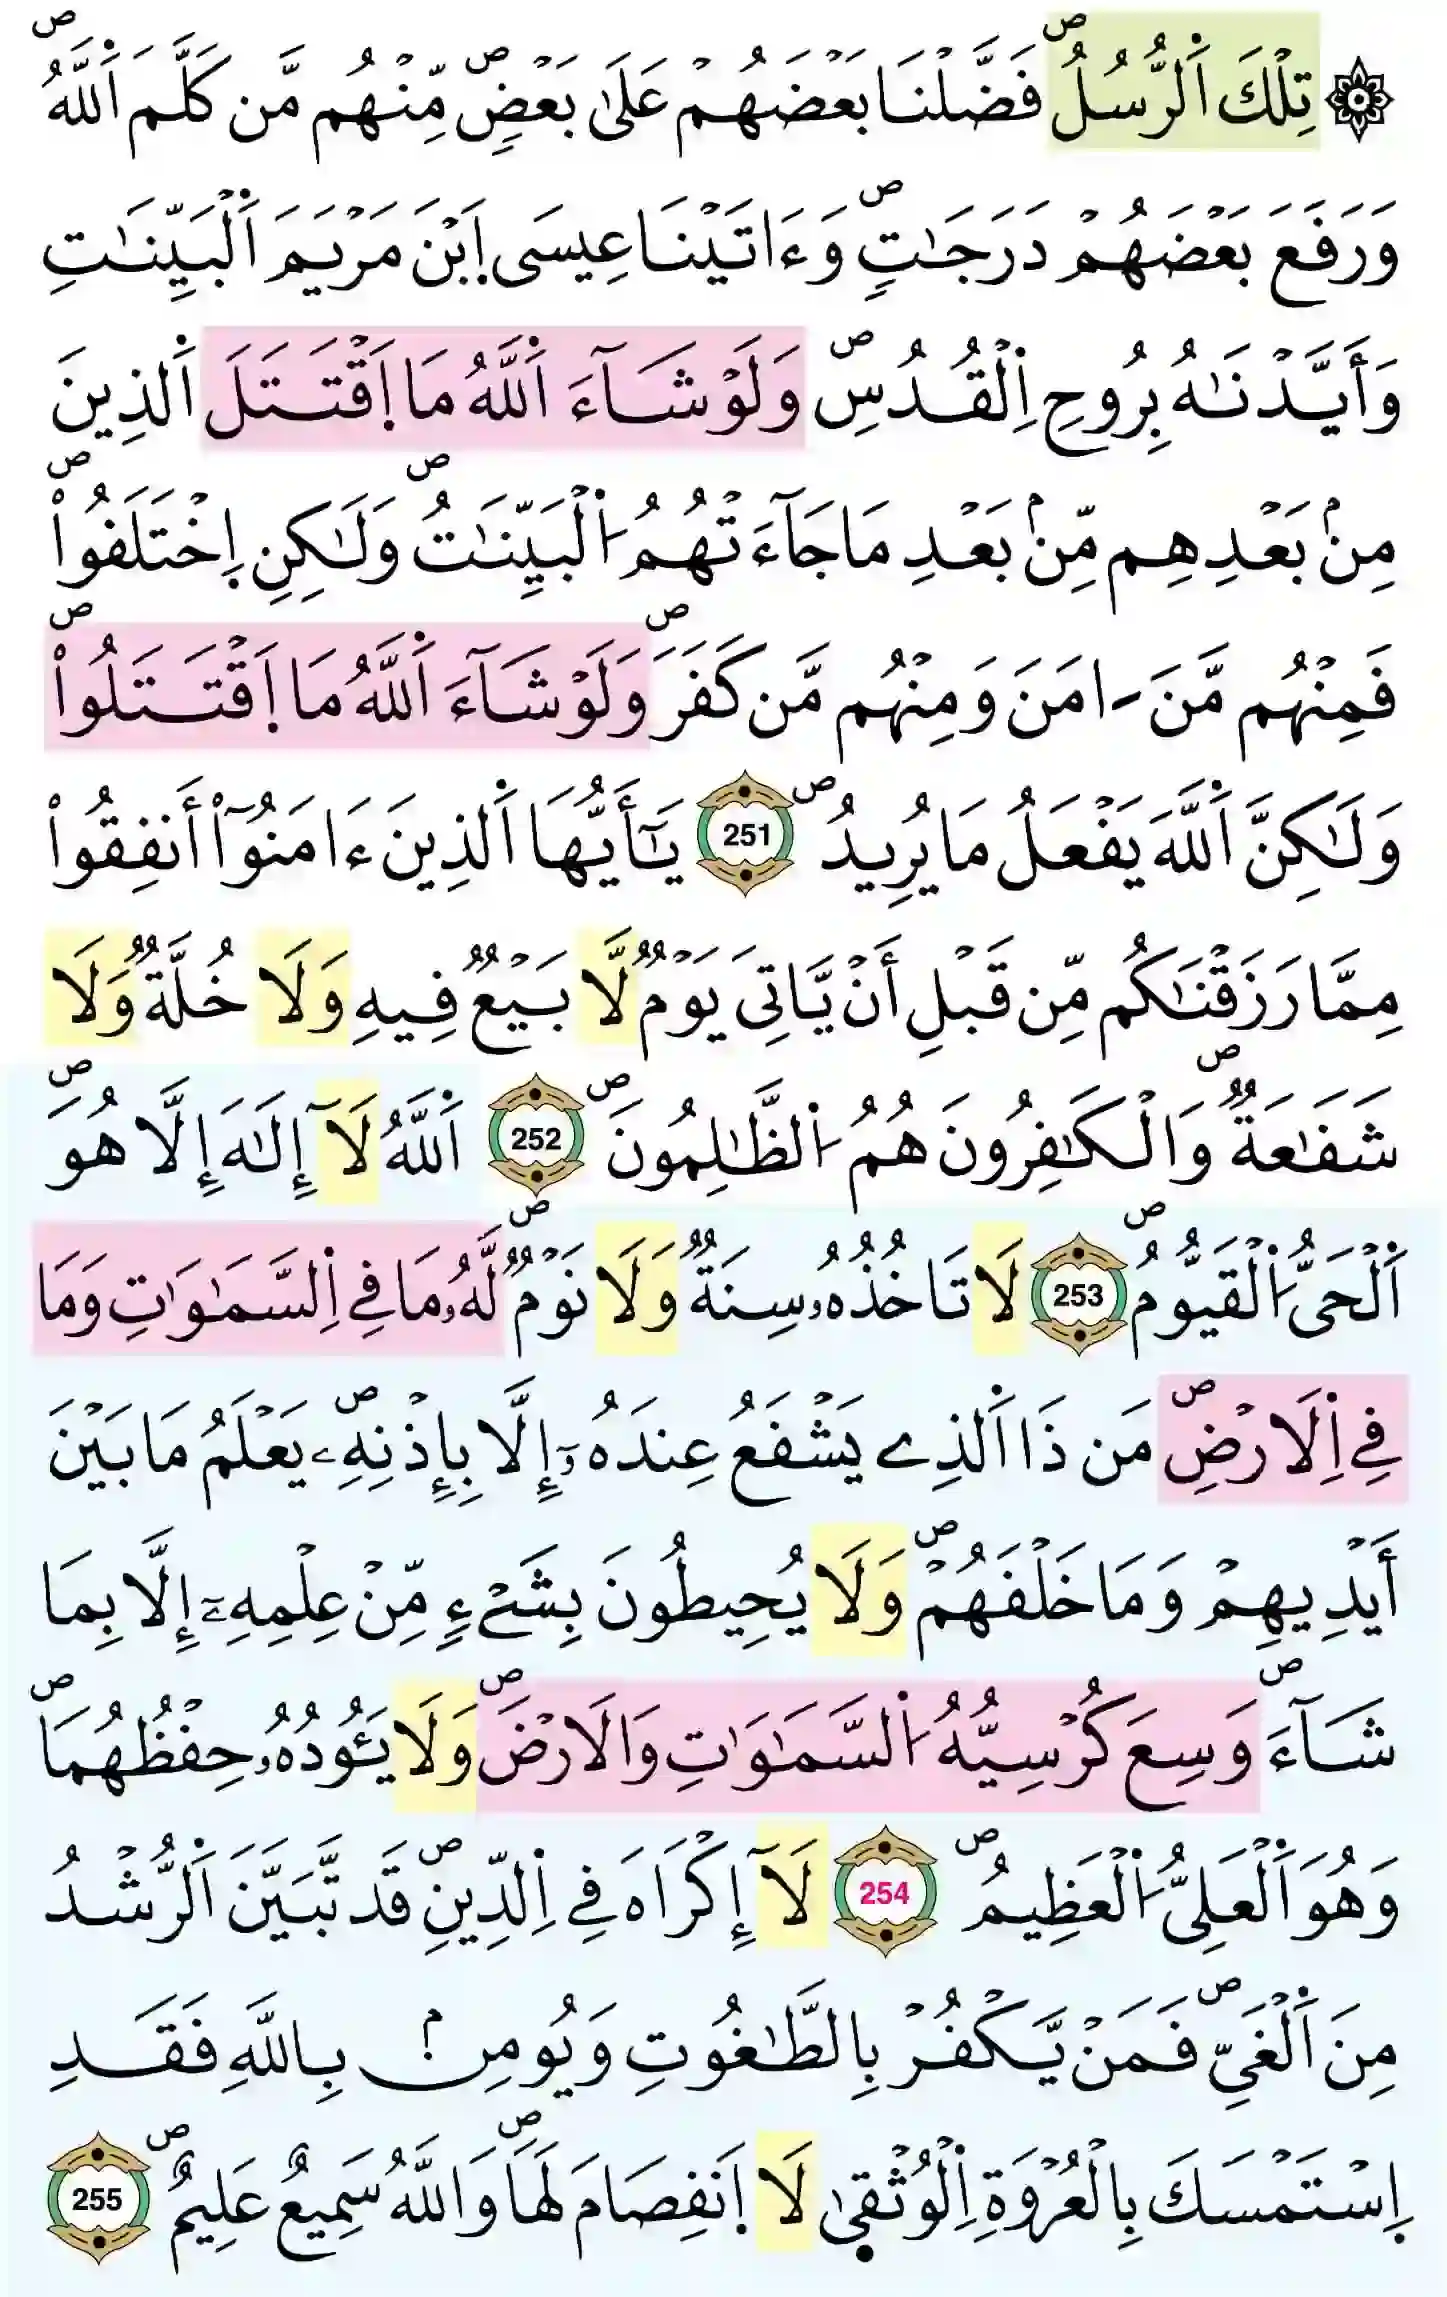 ۞ تِلْكَ اَ۬لرُّسُلُ فَضَّلْنَا بَعْضَهُمْ عَلَىٰ بَعْضٖۖ مِّنْهُم مَّن كَلَّمَ اَ۬للَّهُۖ
وَرَفَعَ بَعْضَهُمْ دَرَجَٰتٖۖ وَءَاتَيْنَا عِيسَى اَ۪بْنَ مَرْيَمَ اَ۬لْبَيِّنَٰتِ
وَأَيَّدْنَٰهُ بِرُوحِ اِ۬لْقُدُسِۖ وَلَوْ شَآءَ اَ۬للَّهُ مَا اَ۪قْتَتَلَ اَ۬لذِينَ
مِنۢ بَعْدِهِم مِّنۢ بَعْدِ مَا جَآءَتْهُمُ اُ۬لْبَيِّنَٰتُۖ وَلَٰكِنِ اِ۪خْتَلَفُواْۖ
فَمِنْهُم مَّنَ ـ اٰمَنَ وَمِنْهُم مَّن كَفَرَۖ وَلَوْ شَآءَ اَ۬للَّهُ مَا اَ۪قْتَتَلُواْۖ
وَلَٰكِنَّ اَ۬للَّهَ يَفْعَلُ مَا يُرِيدُۖ 251 يَٰٓأَيُّهَا اَ۬لذِينَ ءَامَنُوٓاْ أَنفِقُواْ
مِمَّا رَزَقْنَٰكُم مِّن قَبْلِ أَنْ يَّاتِيَ يَوْمٞ لَّا بَيْعٞ فِيهِ وَلَا خُلَّةٞ وَلَا
شَفَٰعَةٞۖ وَالْكَٰفِرُونَ هُمُ اُ۬لظَّٰلِمُونَۖ 252 اَ۬للَّهُ لَآ إِلَٰهَ إِلَّا هُوَۖ
اَ۬لْحَيُّ اُ۬لْقَيُّومُۖ 253 لَا تَاخُذُهُۥ سِنَةٞ وَلَا نَوْمٞۖ لَّهُۥ مَا فِے اِ۬لسَّمَٰوَٰتِ وَمَا
فِے اِ۬لَارْضِۖ مَن ذَا اَ۬لذِے يَشْفَعُ عِندَهُۥٓ إِلَّا بِإِذْنِهِۦۖ يَعْلَمُ مَا بَيْنَ
أَيْدِيهِمْ وَمَا خَلْفَهُمْۖ وَلَا يُحِيطُونَ بِشَےْءٖ مِّنْ عِلْمِهِۦٓ إِلَّا بِمَا
شَآءَۖ وَسِعَ كُرْسِيُّهُ اُ۬لسَّمَٰوَٰتِ وَالَارْضَۖ وَلَا يَـُٔودُهُۥ حِفْظُهُمَاۖ
وَهُوَ اَ۬لْعَلِيُّ اُ۬لْعَظِيمُۖ 254 لَآ إِكْرَاهَ فِے اِ۬لدِّينِۖ قَد تَّبَيَّنَ اَ۬لرُّشْدُ
مِنَ اَ۬لْغَيِّۖ فَمَنْ يَّكْفُرْ بِالطَّٰغُوتِ وَيُومِنۢ بِاللَّهِ فَقَدِ
اِ۪سْتَمْسَكَ بِالْعُرْوَةِ اِ۬لْوُثْق۪ىٰ لَا اَ۪نفِصَامَ لَهَاۖ وَاللَّهُ سَمِيعٌ عَلِيمٌۖ 255